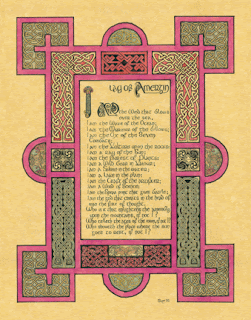 Lay of Amergin
I am the Wind that blows
over the sea,
I am the Wave of the Ocean;
I am the Murmur of the Billows;
I am the Ox of the Seven
Combats;
I am the Vulture upon the rock;
I am a Ray of the Sun;
I am the fairest of Plants;
I am a Wild Boar in Valour;
I am a Salmon in the Water;
I am a Lake in the plain;
I am the Craft of the artificer;
I am a Word of Science;
I am the Spear point that gives battle;
I am the god that creates in the head of
man the fire of thought.
Who is it that enlightens the assembly
upon the mountain, if not I?
Who telleth the ages of the moon, if not I?
Who showeth the place where the sun
goes to rest, if not I?